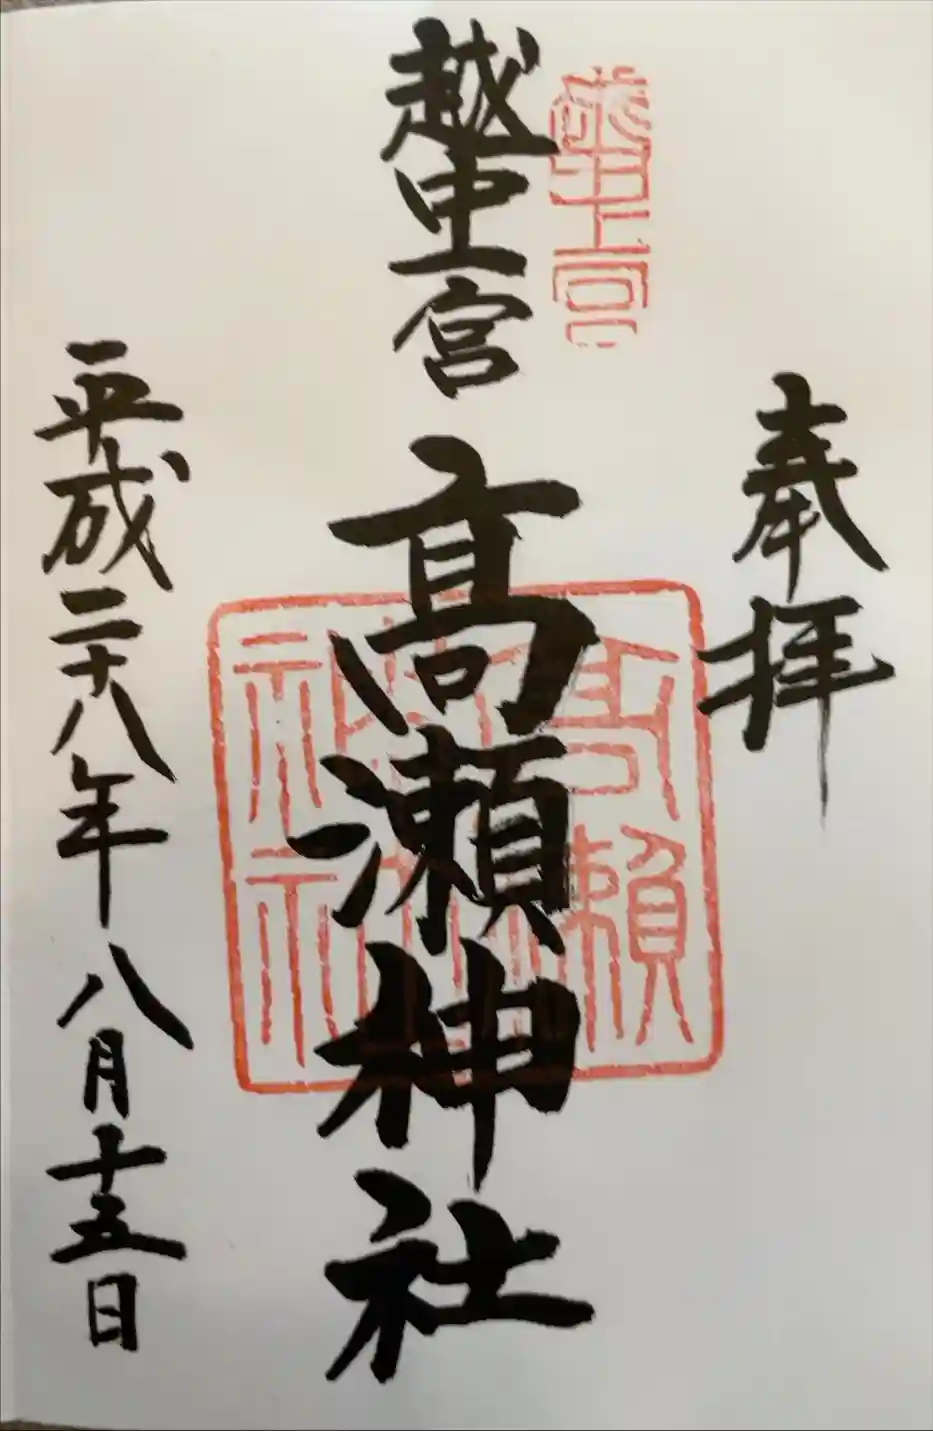 奉拝
越中一宮
越中一宮 髙瀬神社
高瀬神社
平成二十八年八月十五日